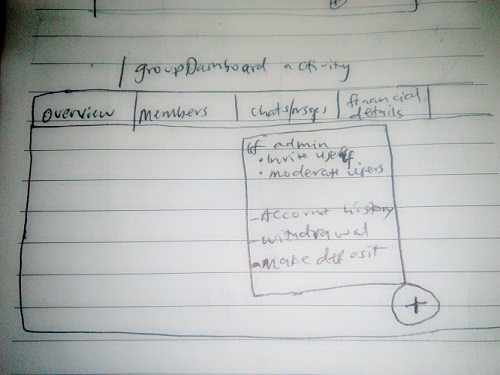 groupDashboard activity
overview members chats/msges financial
details
If admin
• Invite users
• moderate users
- Account history
- withdrawal
- Make deposit
+